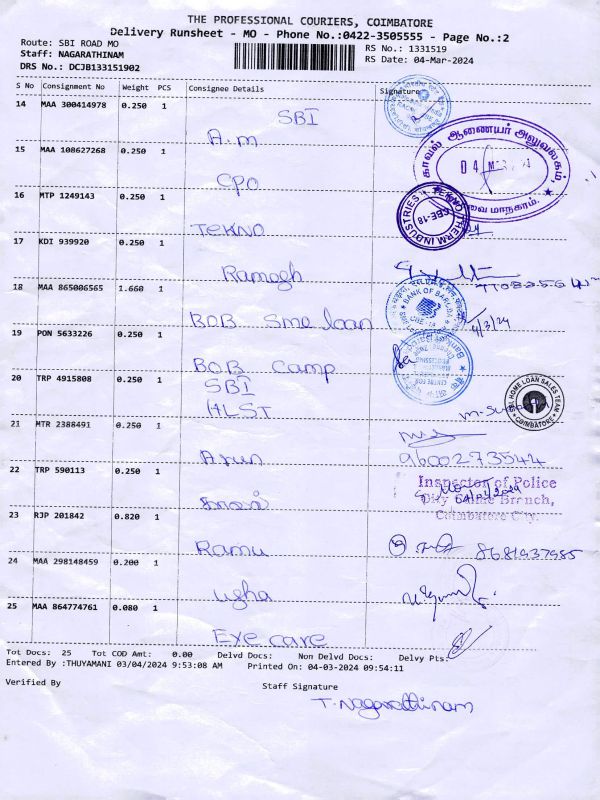 THE PROFESSIONAL COURIERS, COIMBATORE
Delivery Runsheet - MO - Phone No.:0422-3505555 - Page No.:2
Route: SBI ROAD MO RS No.: 1331519
Staff: NAGARATHINAM RS Date: 04-Mar-2024
DRS No.: DCJB133151902
S No Consignment No Weight PCS Consignee Details Signature
14 MAA 300414978 0.250 1 SBI
A.m
15 MAA 108627268 0.250 1
CPO
காவல் ஆணையர் அலுவலகம்,
04 MAR
மாநகரம்.
16 MTP 1249143 0.250 1
TEKNO
TEKNO THERM INDUSTRIES
CBE-18
17 KDI 939920 0.250 1
Ramogh
18 MAA 865006565 1.660 1
BOB Sme loan
BANK OF BARODA
4/3/24
19 PON 5633226 0.250 1
BOB Camp
20 TRP 4915808 0.250 1 SBI
HLST
HOME LOAN SALES TEAM
COIMBATORE
21 MTR 2388491 0.250 1
Arun
9600273544
22 TRP 590113 0.250 1
Inspector of Police
City Crime Branch,
Coimbatore City.
23 RJP 201842 0.820 1
Ramu
8681937985
24 MAA 298148459 0.200 1
Usha
25 MAA 864774761 0.080 1
Eye care
Tot Docs: 25 Tot COD Amt: 0.00 Delvd Docs: Non Delvd Docs: Delvy Pts:
Entered By :THUYAMANI 03/04/2024 9:53:08 AM Printed On: 04-03-2024 09:54:11
Verified By Staff Signature
T. Nagarathinam